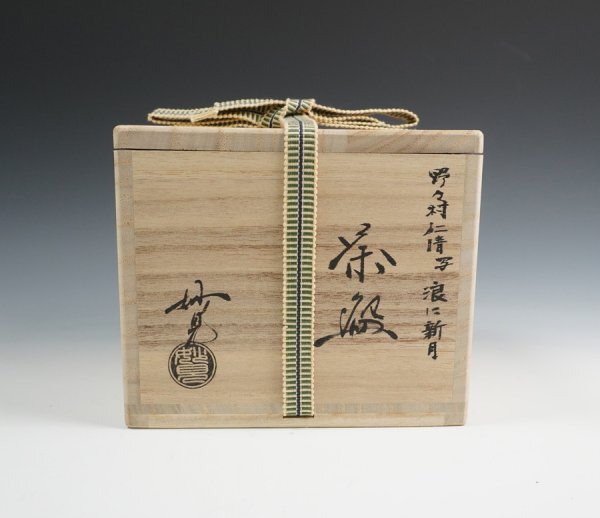 野々村仁清写 浪に新月
茶碗
妙見